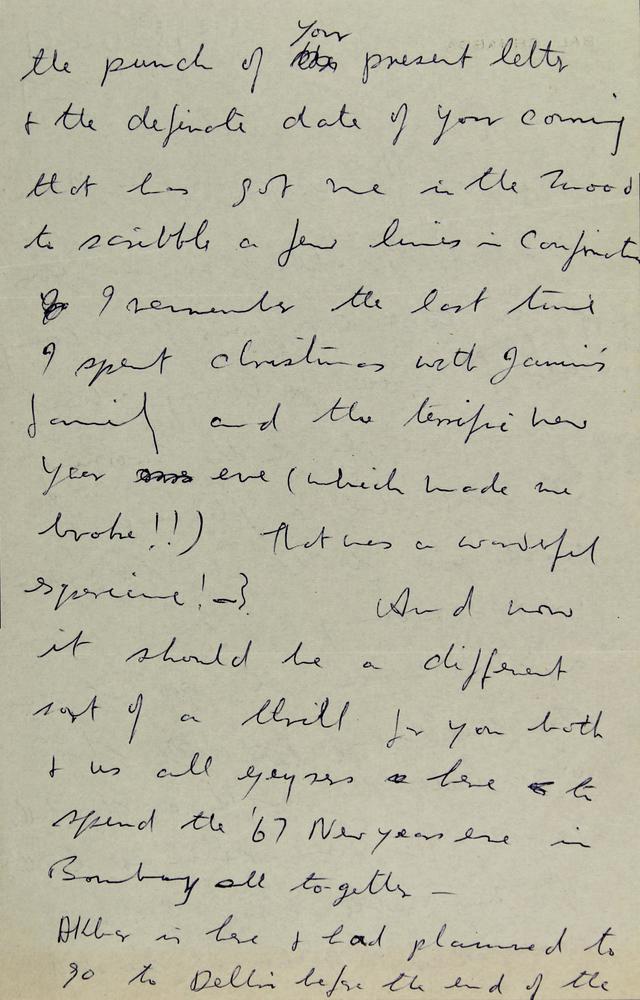 Your
the punch of present letter
& the definate date of your coming
that has got me in the mood
to scribble a few lines in
I remember the last time
I spent christmas with Jamin's
family and the terrific new
year eve (which made me
broke!!) that was a wonderful
experience! And now
it should be a different
sort of a thrill for you both
& us all geysers here to
spend the '67 New years eve in
Bombay all together —
Akbar is here & had planned to
go to Delhi before the end of the